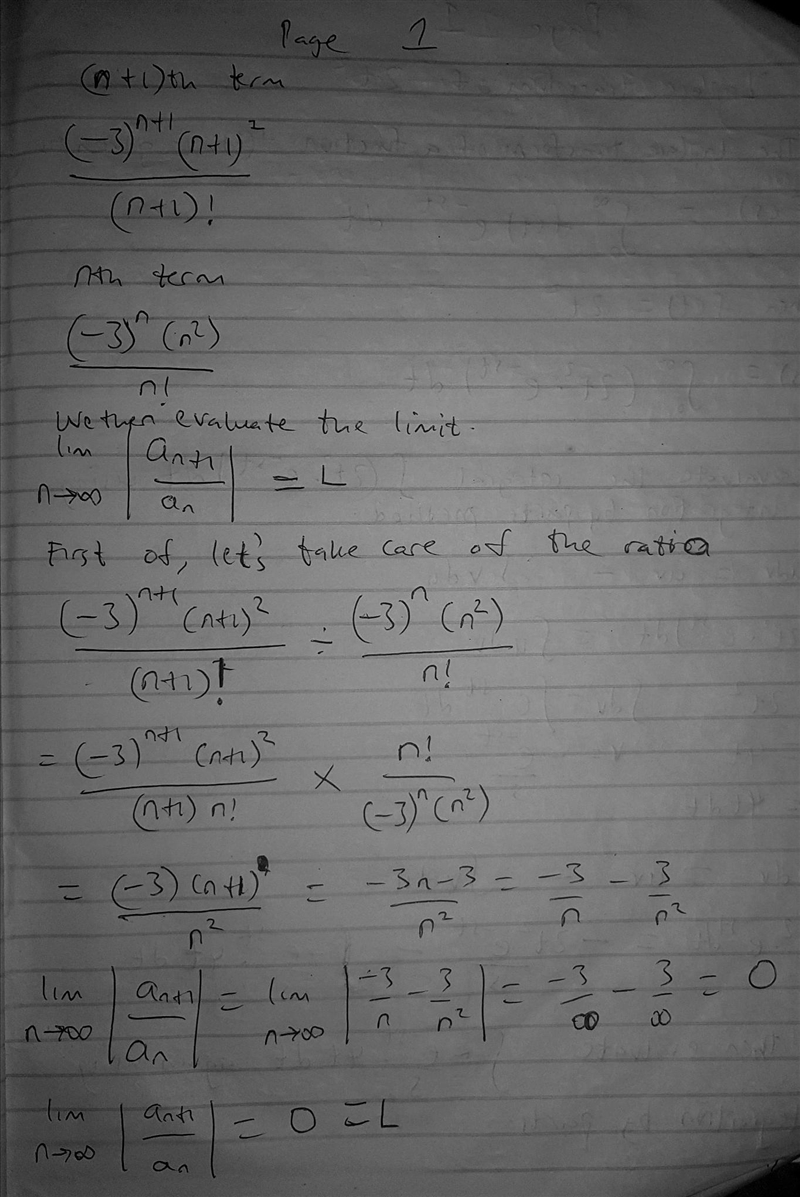 Page 1
(n+1)th term
(-3)^{n+1} (n+1)^2
(n+1)!
nth term
(-3)^n (n^2)
n!
We then evaluate the limit.
lim_{n→∞} |a_{n+1} / a_n| = L
First of, let's take care of the ratio
(-3)^{n+1} (n+1)^2 / (n+1)! ÷ (-3)^n (n^2) / n!
= (-3)^{n+1} (n+1)^2 / (n+1) n! × n! / (-3)^n (n^2)
= (-3) (n+1) / n^2 = -3n-3 / n^2 = -3/n - 3/n^2
lim_{n→∞} |a_{n+1} / a_n| = lim_{n→∞} |-3/n - 3/n^2| = -3/∞ - 3/∞ = 0
lim_{n→∞} |a_{n+1} / a_n| = 0 = L